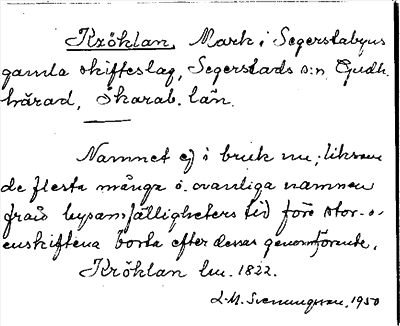 Kröklan, Mark i Segerstabyns
gamla skifteslag, Segerstads s:n, Gudh.
härad, Skarab. län.
Namnet ej i bruk nu; liksom
de flesta många o. ovanliga namnen
från bysamfälligheters tid före stor- o.
enskiftena borta efter dessas genomförande.
Kröklan lm. 1822.
L.M. Svenungsson, 1950